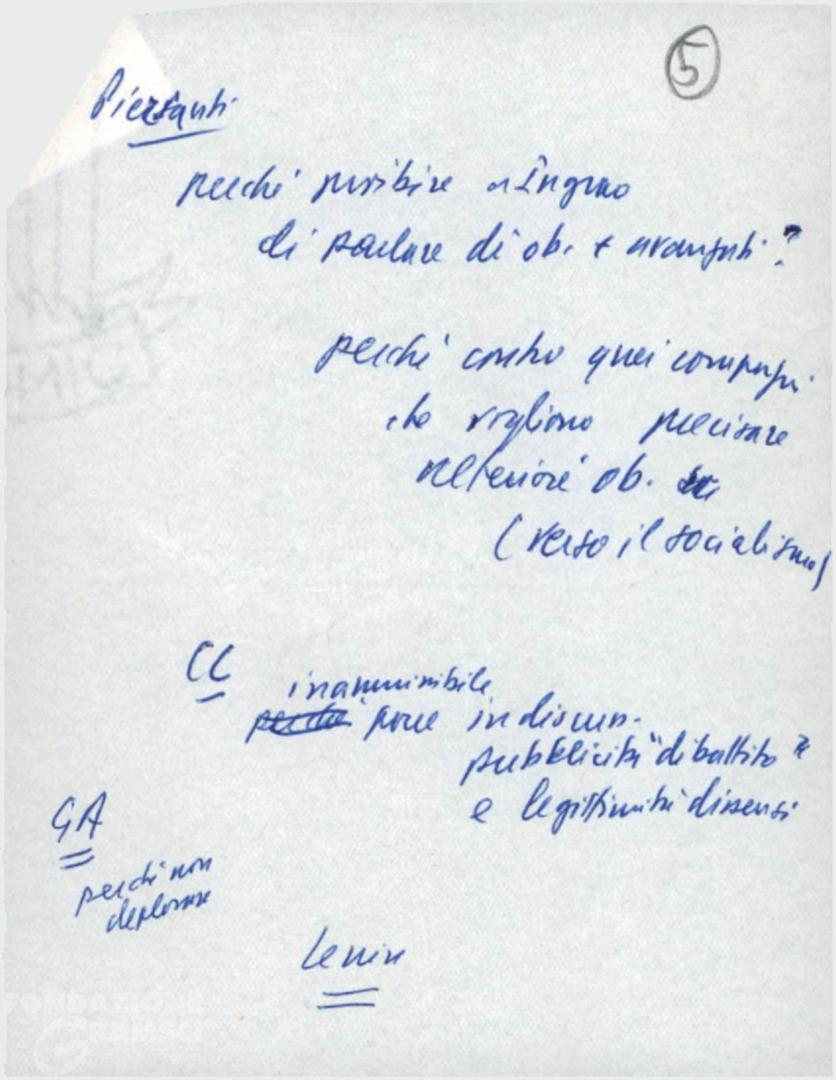 5
Piersanti
perché proibire a Ingrao
di parlare di ob. + avanzati?
perché contro quei compagni
che vogliono precisare
ulteriori ob.
(verso il socialismo)
CC
inammissibile
perché porre in discuss.
pubblicità "dibattito"
e legittimità dissensi
GA
perché non
deplorare
Lenin
FONDAZIONE
GRAMSCI